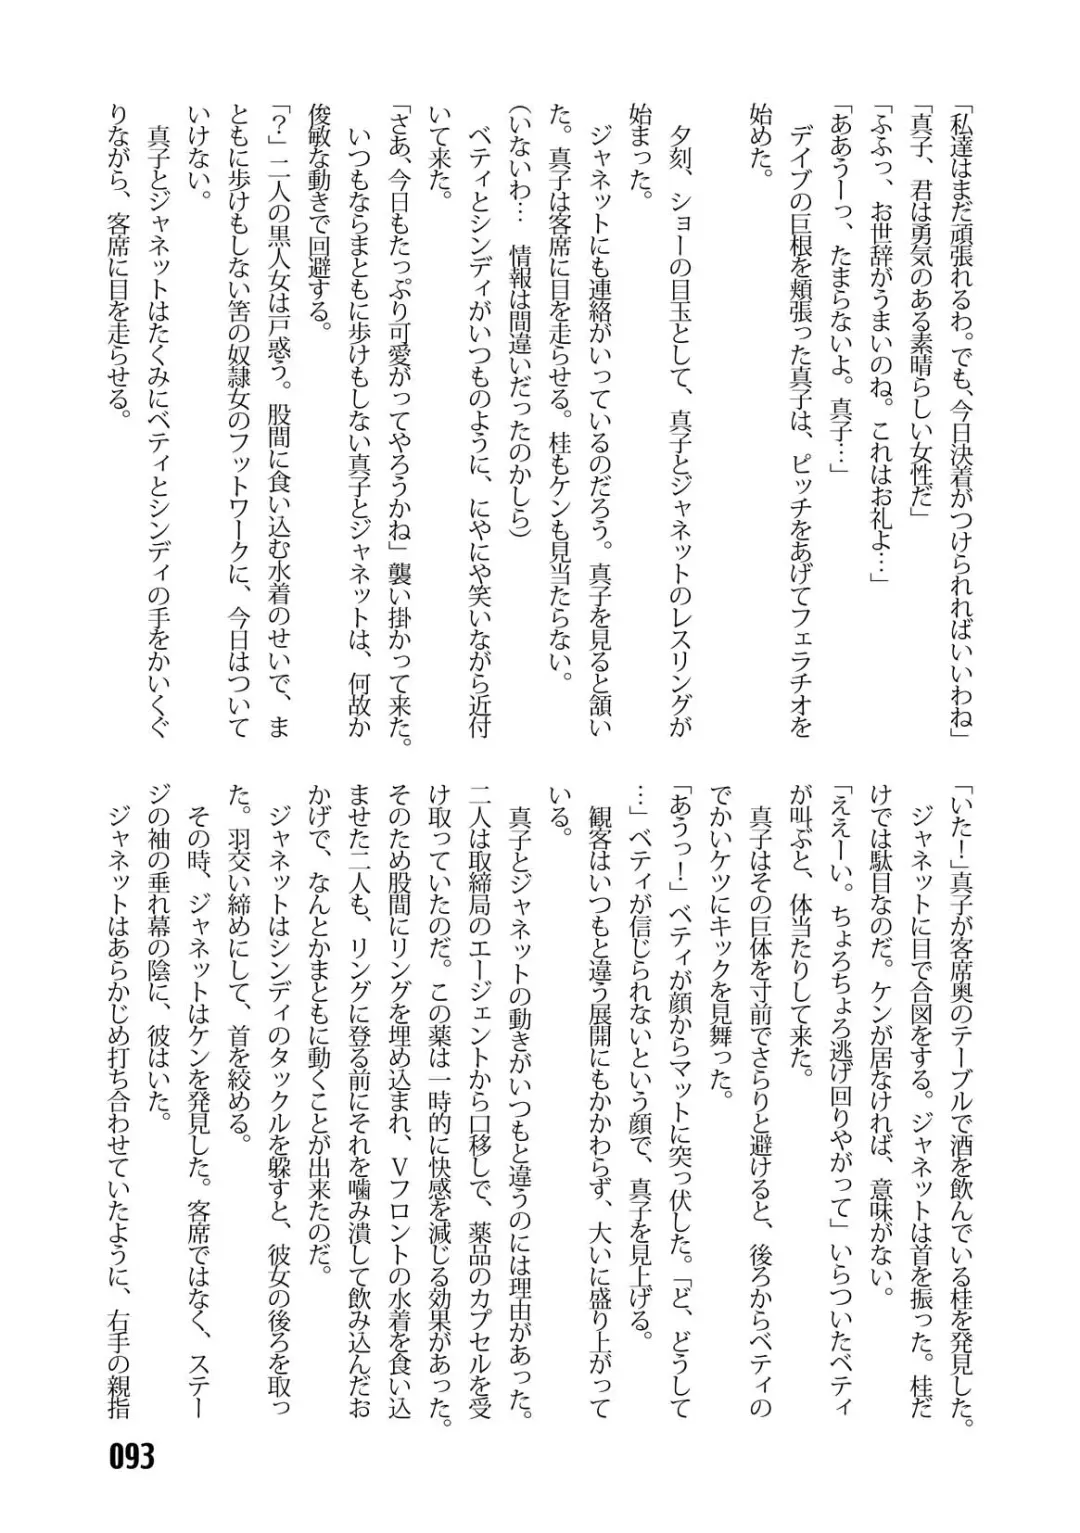 「私達はまだ頑張れるわ。でも、今日決着がつけられればいいわね」
「真子、君は勇気のある素晴らしい女性だ」
「ふふっ、お世辞がうまいのね。これはお礼よ…」
「ああうーっ、たまらないよ。真子…」
デイブの巨根を頬張った真子は、ピッチをあげてフェラチオを
始めた。
夕刻、ショーの目玉として、真子とジャネットのレスリングが
始まった。
ジャネットにも連絡がいっているのだろう。真子を見ると頷い
た。真子は客席に目を走らせる。桂もケンも見当たらない。
(いないわ… 情報は間違いだったのかしら)
ベティとシンディがいつものように、にやにや笑いながら近付
いて来た。
「さあ、今日もたっぷり可愛がってやろうかね」襲い掛かって来た。
いつもならまともに歩けもしない真子とジャネットは、何故か
俊敏な動きで回避する。
「?」二人の黒人女は戸惑う。股間に食い込む水着のせいで、ま
ともに歩けもしない筈の奴隷女のフットワークに、今日はついて
いけない。
真子とジャネットはたくみにベティとシンディの手をかいくぐ
りながら、客席に目を走らせる。
「いた!」真子が客席奥のテーブルで酒を飲んでいる桂を発見した。
ジャネットに目で合図をする。ジャネットは首を振った。桂だ
けでは駄目なのだ。ケンが居なければ、意味がない。
「ええーい。ちょろちょろ逃げ回りやがって」いらついたベティ
が叫ぶと、体当たりして来た。
真子はその巨体を寸前でさらりと避けると、後ろからベティの
でかいケツにキックを見舞った。
「あうっ!」ベティが顔からマットに突っ伏した。「ど、どうして
…」ベティが信じられないという顔で、真子を見上げる。
観客はいつもと違う展開にもかかわらず、大いに盛り上がって
いる。
真子とジャネットの動きがいつもと違うのには理由があった。
二人は取締局のエージェントから口移しで、薬品のカプセルを受
け取っていたのだ。この薬は一時的に快感を減じる効果があった。
そのため股間にリングを埋め込まれ、Vフロントの水着を食い込
ませた二人も、リングに登る前にそれを噛み潰して飲み込んだお
かげで、なんとかまともに動くことが出来たのだ。
ジャネットはシンディのタックルを躱すと、彼女の後ろを取っ
た。羽交い締めにして、首を絞める。
その時、ジャネットはケンを発見した。客席ではなく、ステー
ジの袖の垂れ幕の陰に、彼はいた。
ジャネットはあらかじめ打ち合わせていたように、右手の親指
093